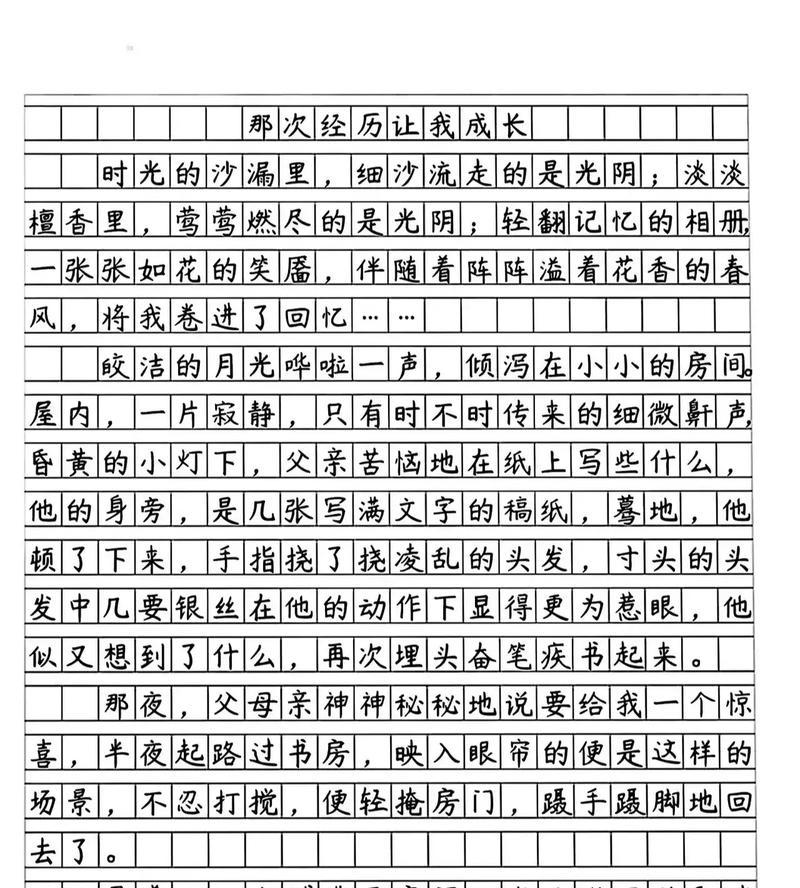 那次经历让我成长
时光的沙漏里，细沙流走的是光阴；淡淡
檀香里，莺莺燃尽的是光阴；轻翻记忆的相册，
一张张如花的笑靥，伴随着阵阵溢着花香的春
风，将我卷进了回忆……
皎洁的月光哗啦一声，倾泻在小小的房间。
屋内，一片寂静，只有时不时传来的细微鼾声，
昏黄的小灯下，父亲苦恼地在纸上写些什么，
他的身旁，是几张写满文字的稿纸，蓦地，他
顿了下来，手指挠了挠凌乱的头发，寸头的头
发中几要银丝在他的动作下显得更为惹眼，他
似又想到了什么，再次埋头奋笔疾书起来。
那夜，父母亲神神秘秘地说要给我一个惊
喜，半夜起路过书房，映入眼帘的便是这样的
场景，不忍打搅，便轻掩房门，蹑手蹑脚地回
去了。